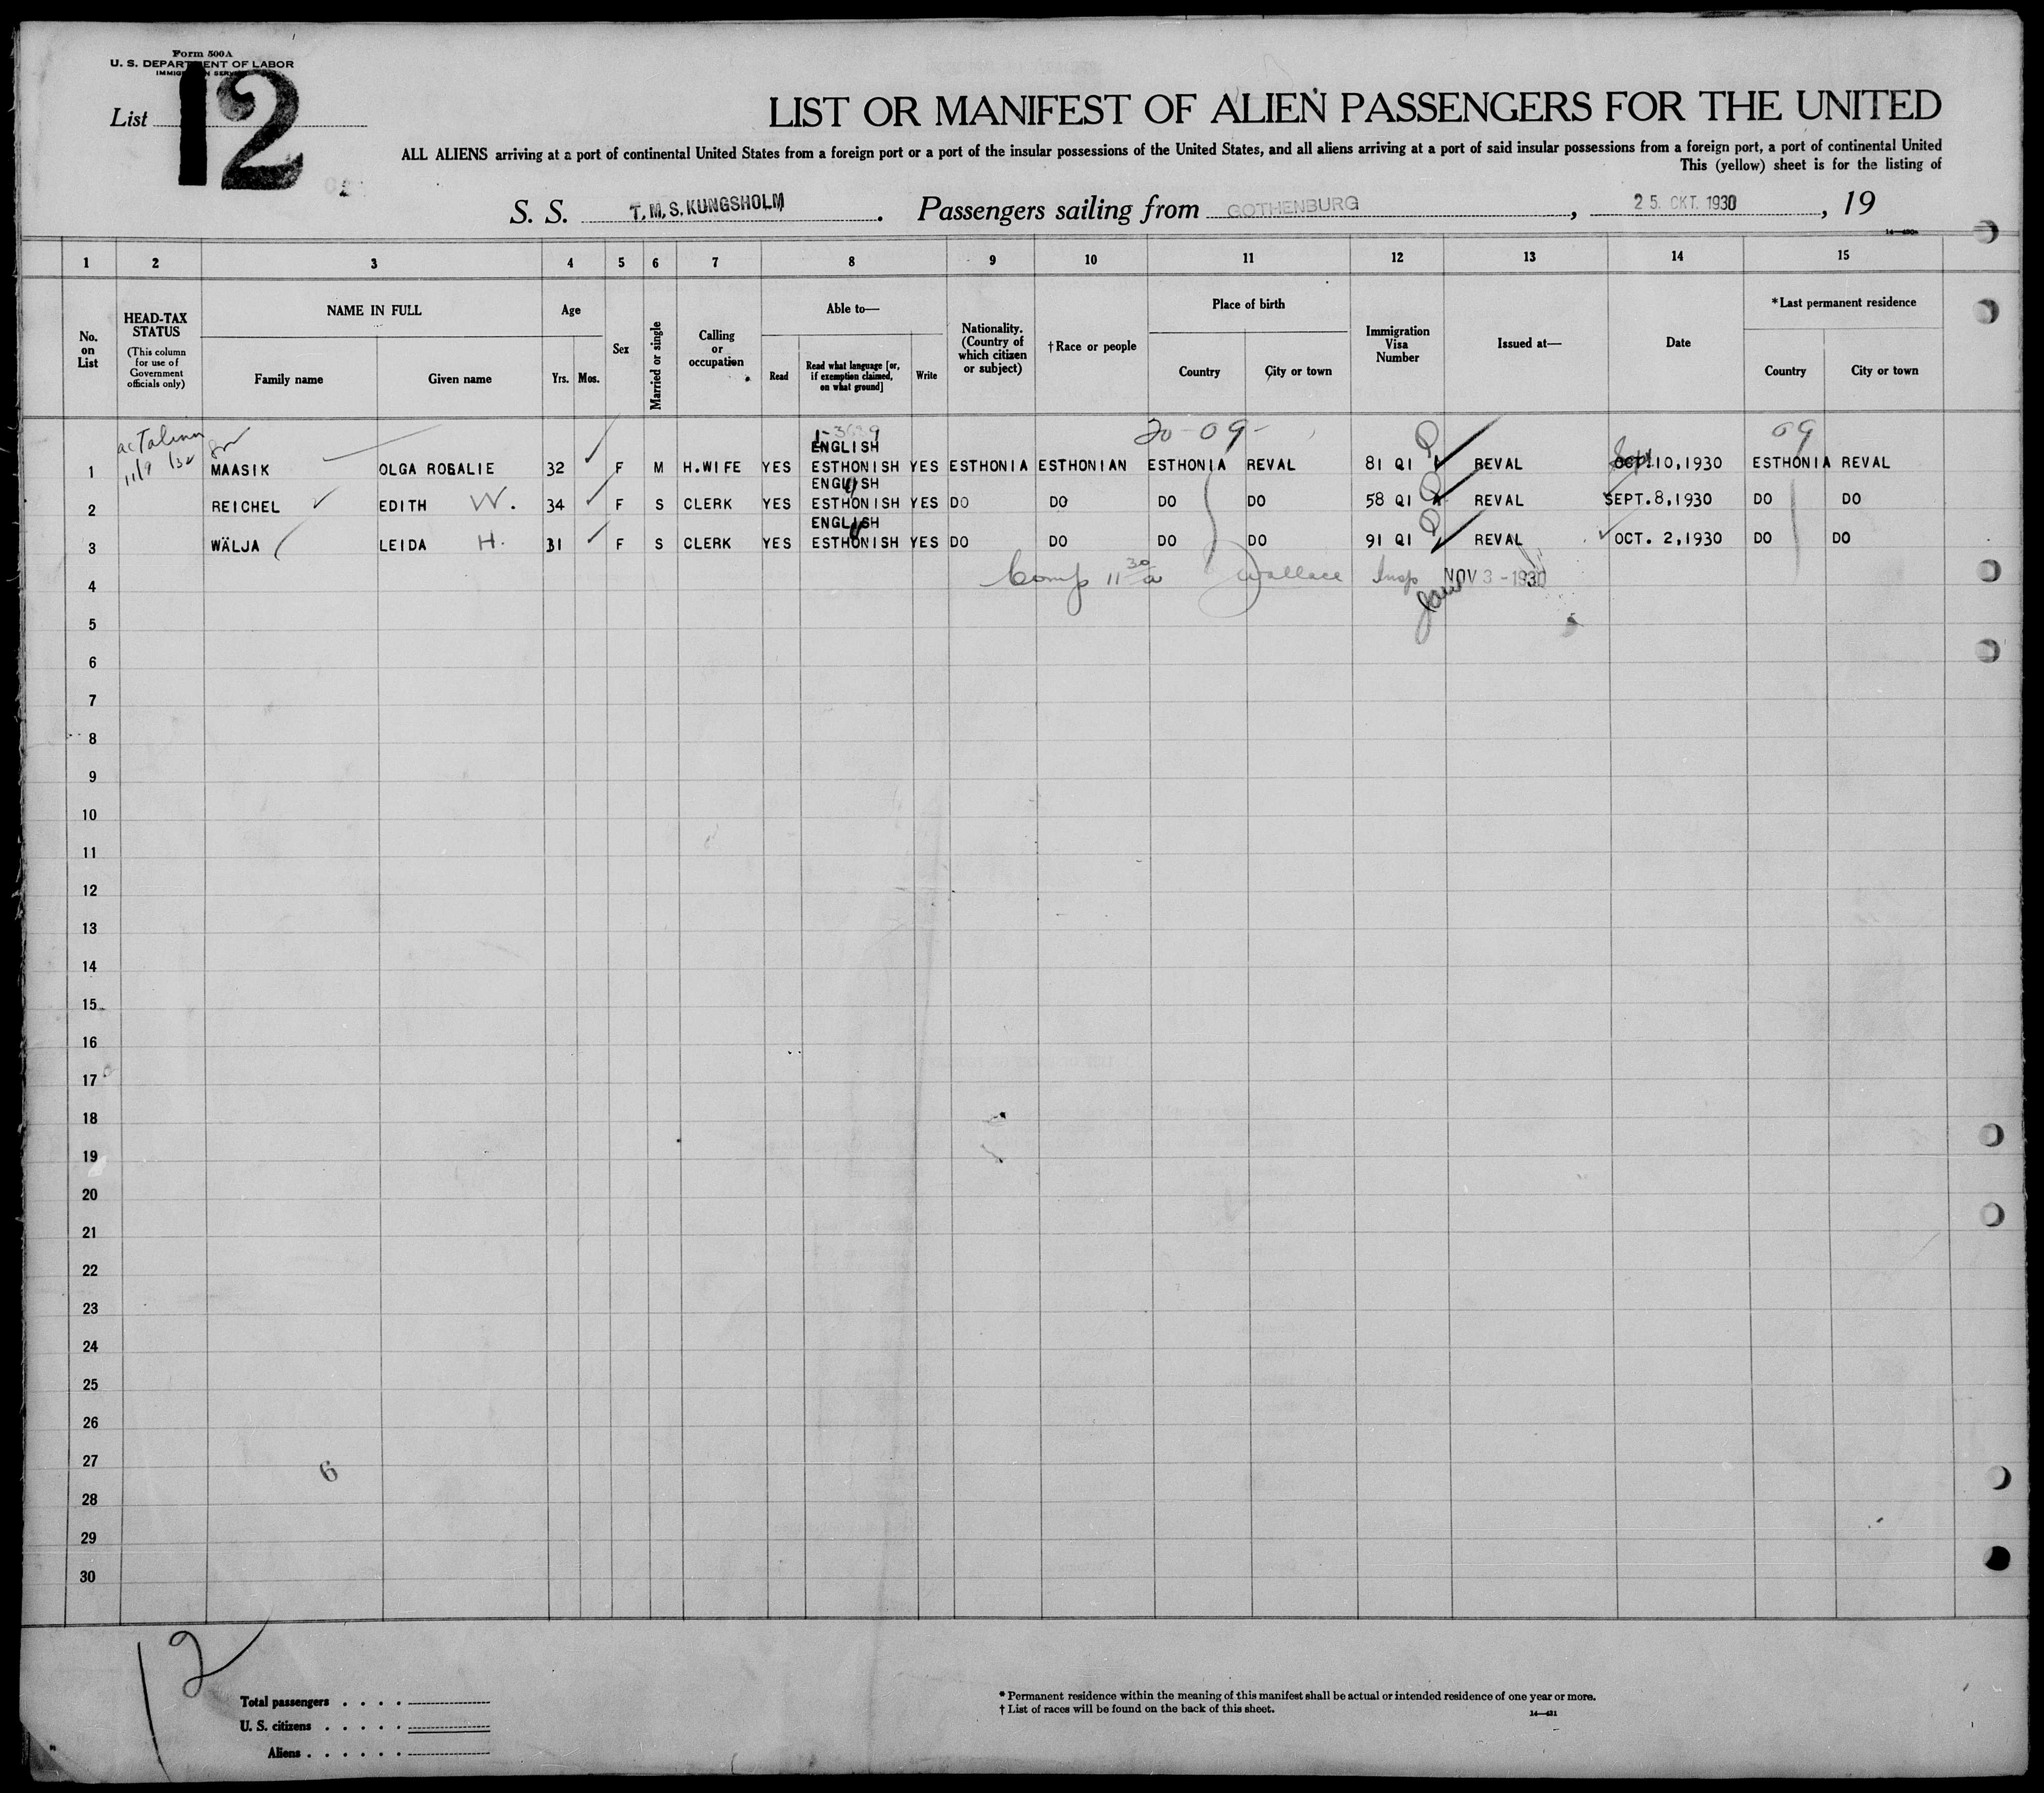 Form 500 A
U. S. DEPARTMENT OF LABOR
IMMIGRATION SERVICE
List 12
LIST OR MANIFEST OF ALIEN PASSENGERS FOR THE UNITED
ALL ALIENS arriving at a port of continental United States from a foreign port or a port of the insular possessions of the United States, and all aliens arriving at a port of said insular possessions from a foreign port, a port of continental United
This (yellow) sheet is for the listing of
S. S. T.M.S. KUNGSHOLM. Passengers sailing from GOTHENBURG, 25. OKT. 1930, 19
1 2 3 4 5 6 7 8 9 10 11 12 13 14 15
No. on List
HEAD-TAX STATUS
(This column for use of Government officials only)
NAME IN FULL
Family name
Given name
Age
Yrs.
Mos.
Sex
Married or single
Calling or occupation
Able to—
Read
Read what language [or, if exemption claimed, on what ground]
Write
Nationality. (Country of which citizen or subject)
† Race or people
Place of birth
Country
City or town
Immigration Visa Number
Issued at—
Date
*Last permanent residence
Country
City or town
20-09-
09
ENGLISH
1 MAASIK OLGA ROSALIE 32 F M H.WIFE YES ESTHONISH YES ESTHONIA ESTHONIAN ESTHONIA REVAL 81 QI REVAL Sept 10,1930 ESTHONIA REVAL
ENGLISH
2 REICHEL EDITH W. 34 F S CLERK YES ESTHONISH YES DO DO DO DO 58 QI REVAL SEPT.8,1930 DO DO
ENGLISH
3 WÄLJA LEIDA H. 31 F S CLERK YES ESTHONISH YES DO DO DO DO 91 QI REVAL OCT. 2,1930 DO DO
4 Comp 11 30 a Wallace Insp NOV 3 - 1930
5
6
7
8
9
10
11
12
13
14
15
16
17
18
19
20
21
22
23
24
25
26
27
6
28
29
30
12
Total passengers . . . .
U. S. citizens . . . . .
Aliens . . . . . .
* Permanent residence within the meaning of this manifest shall be actual or intended residence of one year or more.
† List of races will be found on the back of this sheet.
14—431